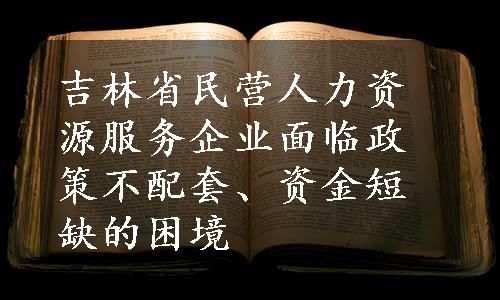 吉林省民营人力资
源服务企业面临政
策不配套、资金短
缺的困境